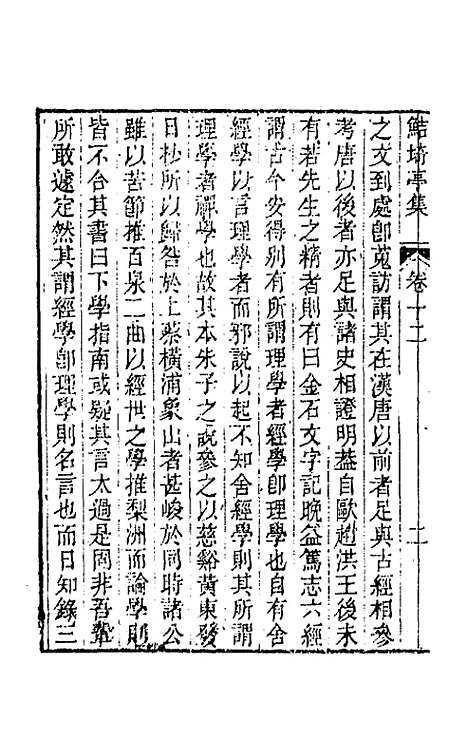 鮚埼亭集 卷十二 二
之文到處卽蒐訪謂其在漢唐以前者足與古經相參
考唐以後者亦足與諸史相證明葢自歐趙洪王後未
有若先生之精者則有曰金石文字記晚益篤志六經
謂古今安得別有所謂理學者經學卽理學也自有舍
經學以言理學者而邪說以起不知舍經學則其所謂
理學者禪學也故其本朱子之說參之以慈谿黃東發
日杪所以歸咎於上蔡橫浦象山者甚峻於同時諸公
雖以苦節推百泉二曲以經世之學推梨洲而論學則
皆不合其書曰下學指南或疑其言太過是固非吾輩
所敢遽定然其謂經學卽理學則名言也而日知錄三